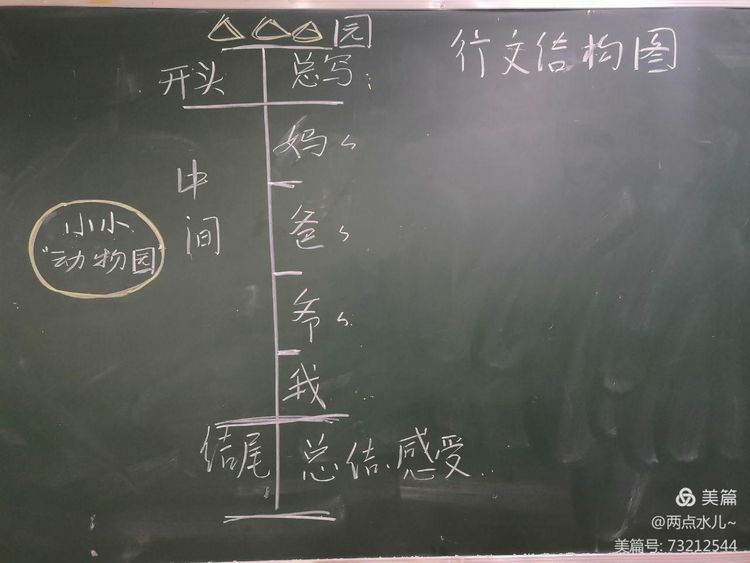 △△△园
行文结构图
开头 总写:
妈〃
中间
爸〃
小小
"动物园"
爷〃
我
结尾 总结感受..
美篇
@两点水儿~
美篇号: 73212544